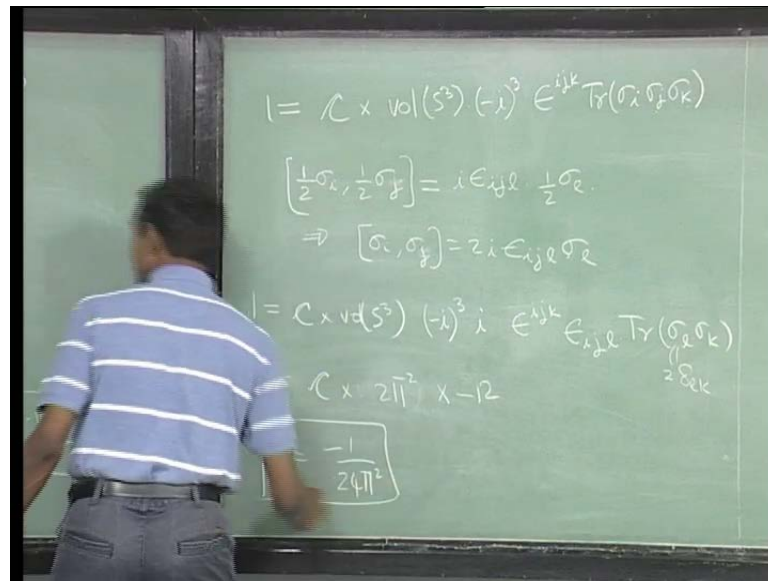 1 = C × vol(S³) (-i)³ ϵ^{ijk} Tr(σ_i σ_j σ_k)
[½σ_i, ½σ_j] = i ϵ_{ijl} · ½σ_l.
⇒ [σ_i, σ_j] = 2i ϵ_{ijl} σ_l
1 = C × vol(S³) (-i)³ i ϵ^{ijk} ϵ_{ijl} Tr(σ_l σ_k)
2 δ_{lk}
C × 2π² × -12
= -1/24π²